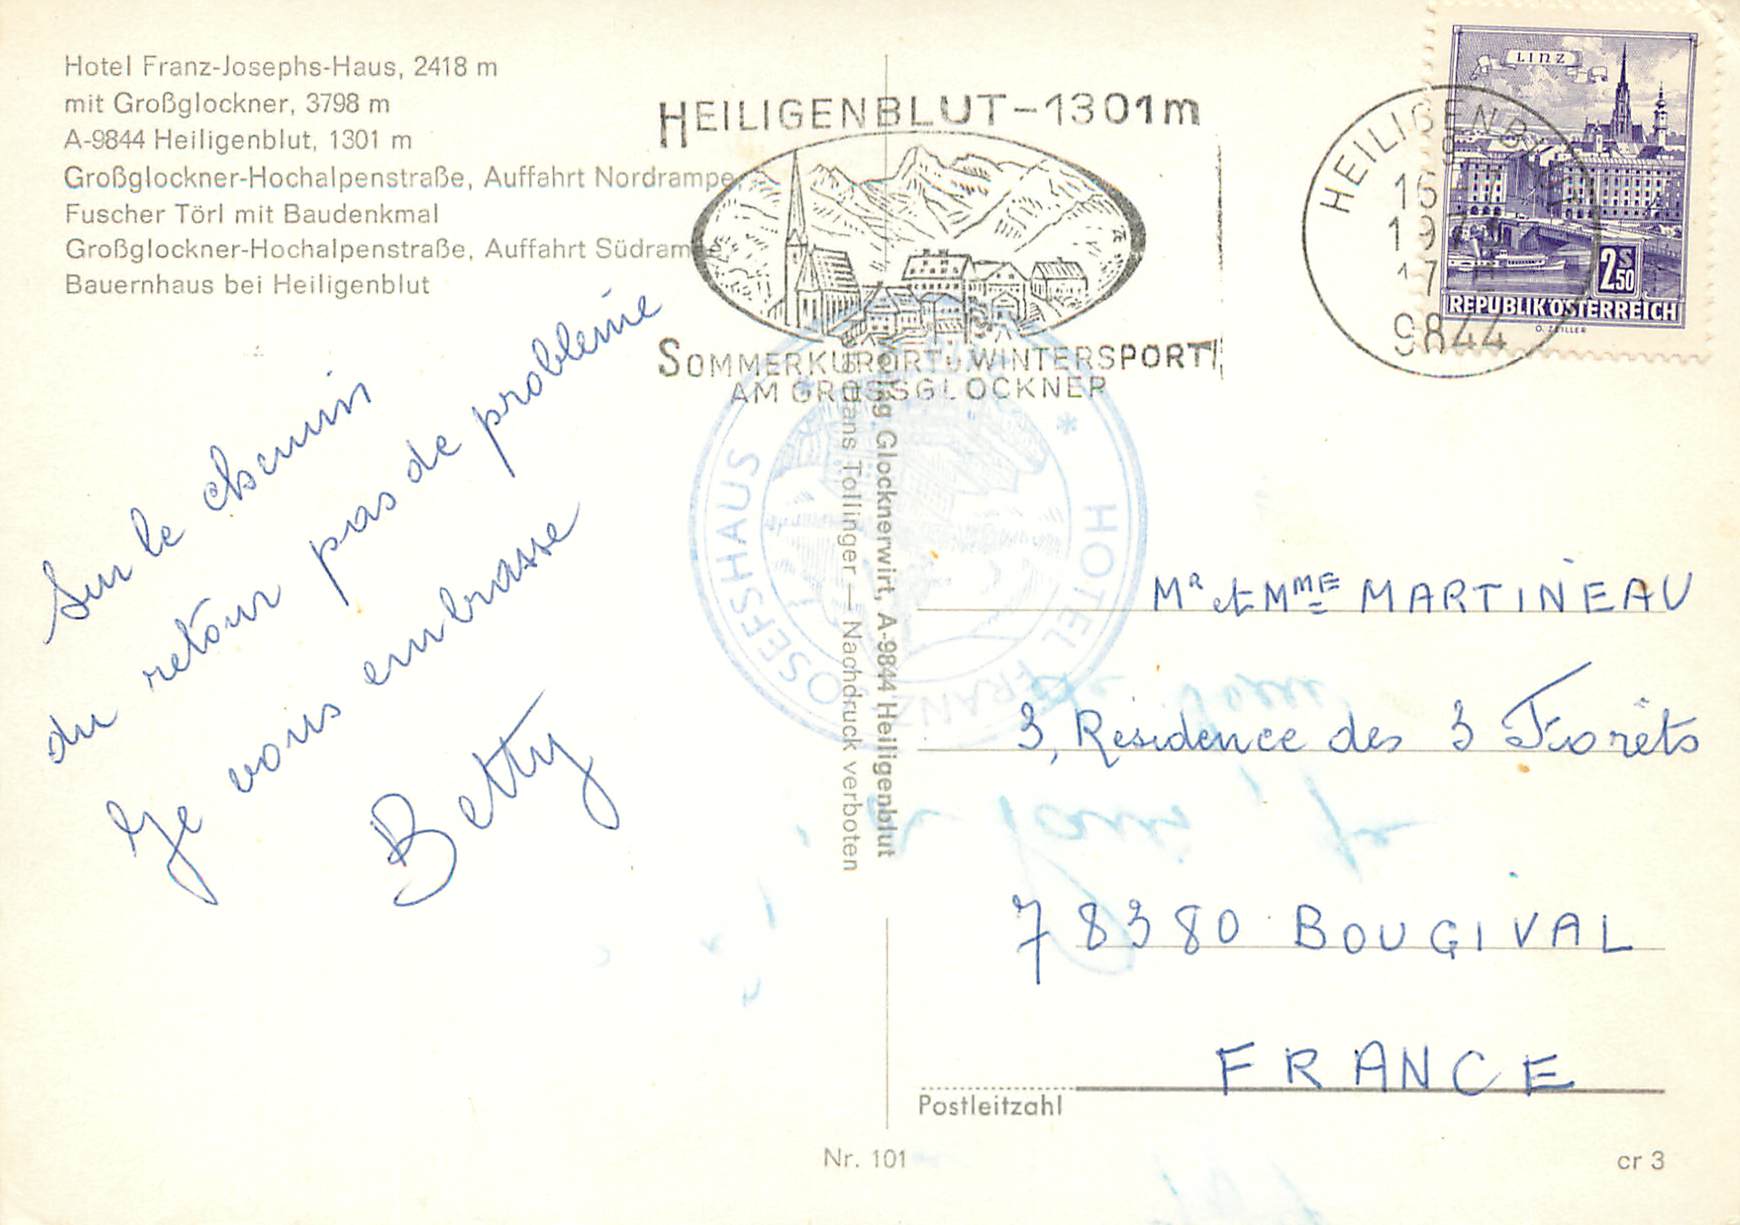 Hotel Franz-Josephs-Haus, 2418 m
mit Großglockner, 3798 m
A-9844 Heiligenblut, 1301 m
Großglockner-Hochalpenstraße, Auffahrt Nordrampe
Fuscher Törl mit Baudenkmal
Großglockner-Hochalpenstraße, Auffahrt Südrampe
Bauernhaus bei Heiligenblut
HEILIGENBLUT-1301m
SOMMERKURORT u. WINTERSPORT
AM GROSSGLOCKNER
HEILIGENBLUT
9844
LINZ
2S50
REPUBLIK ÖSTERREICH
O. ZEILLER
Sur le chemin
du retour pas de problème
Je vous embrasse
Betty
HOTEL FRANZ JOSEFSHAUS
Verlag Glocknerwirt, A-9844 Heiligenblut
Hans Tollinger — Nachdruck verboten
MR et MME MARTINEAU
3, Résidence des 3 Forêts
78380 BOUGIVAL
FRANCE
Postleitzahl
Nr. 101
cr 3